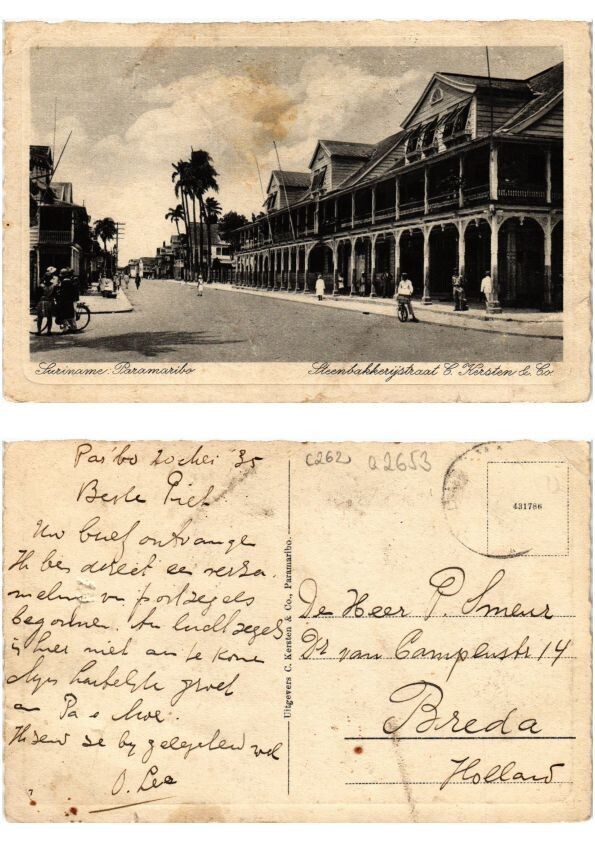 Suriname: Paramaribo
Steenbakkerijstraat C. Kersten & Co.
Par'bo 20 Mei '35
Beste Piet
Uw brief ontvange
Ik ben direct een verza
melen v postzegels
begonnen. An luchtzegels
is hier niet an te kome
hartelijk groet
an Pa e Moe.
Ik zend ze by gelegenheid wel
O. Leo
Uitgevers C. Kersten & Co., Paramaribo.
C262
a2653
431786
De Heer P. Smeur
Dr van Campenstr 14
Breda
Holland